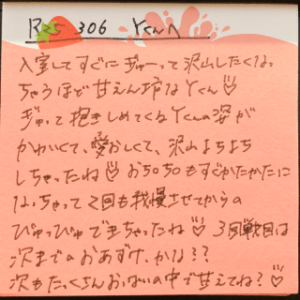 R25 306 Yくんへ
入室してすぐにぎゅーって沢山したくなっ
ちゃうほど甘えん坊なYくん♡
ぎゅって抱きしめてくるYくんの姿が
かわいくて、愛おしくて、沢山よちよち
しちゃったね♡ おちおちもすぐかたかたに
なっちゃって2回も我慢させてからの
ぴゅっぴゅできちゃったね♡ 3回戦目は
次までのおあずけ、かな??
次もたっくさんおっぱいの中で甘えてね?♡